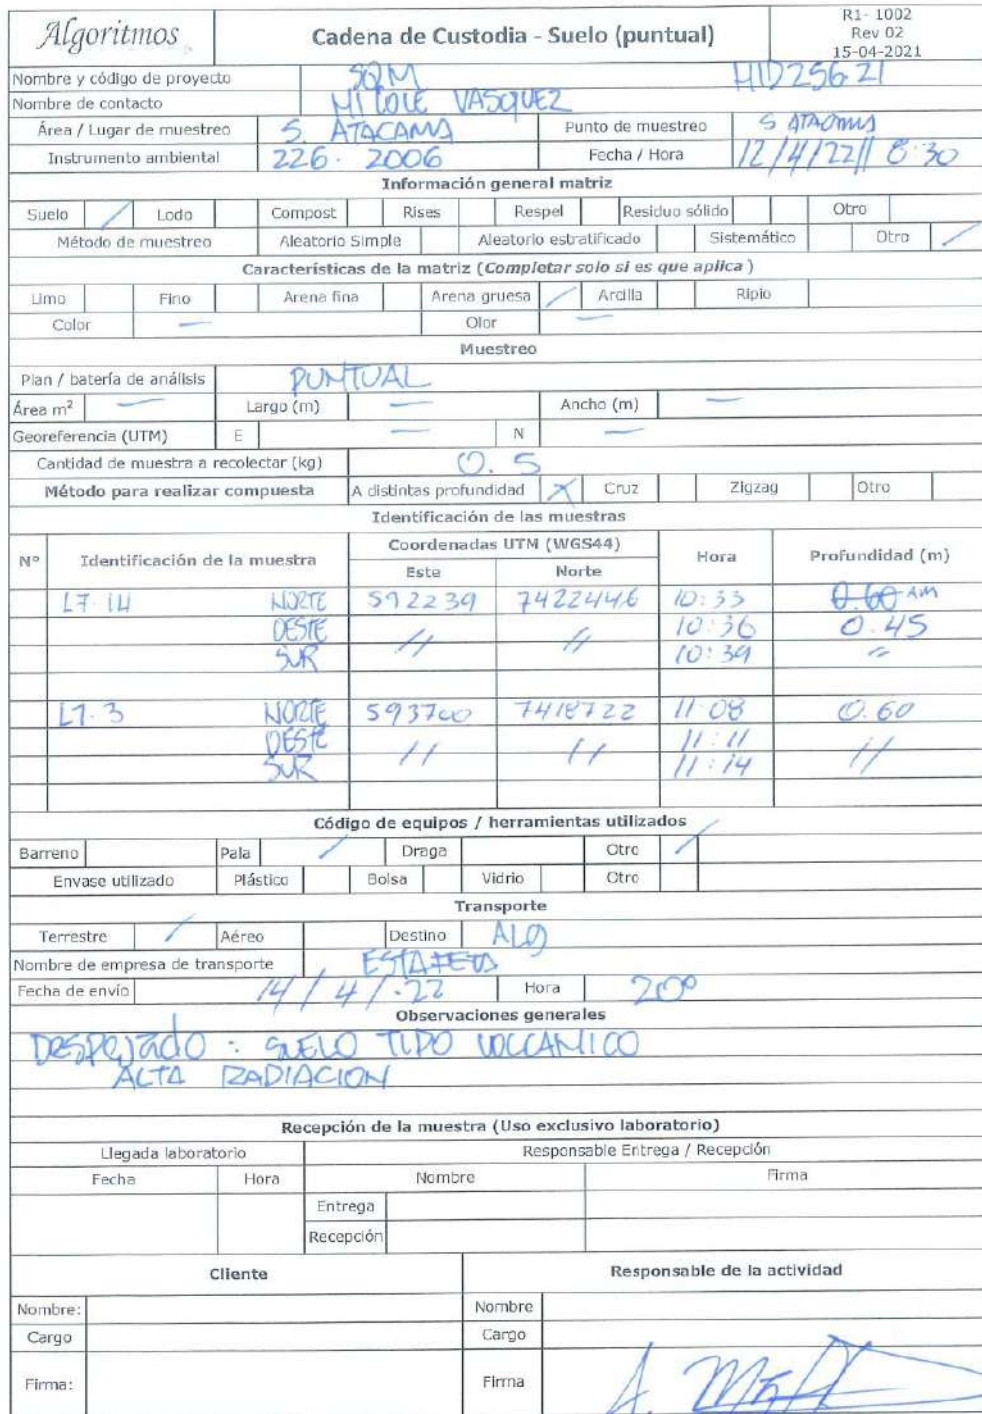 Algoritmos Cadena de Custodia - Suelo (puntual) R1- 1002
Rev 02
15-04-2021
Nombre y código de proyecto SQM HID256 21
Nombre de contacto VASQUEZ
Área / Lugar de muestreo S. ATACAMA Punto de muestreo S ATACAMA
Instrumento ambiental 226. 2006 Fecha / Hora 12/4/22// 8:30
Información general matriz
Suelo / Lodo Compost Rises Respel Residuo sólido Otro
Método de muestreo Aleatorio Simple Aleatorio estratificado Sistemático Otro /
Características de la matriz (Completar solo si es que aplica)
Limo Fino Arena fina Arena gruesa / Arcilla Ripio
Color — Olor —
Muestreo
Plan / batería de análisis PUNTUAL
Área m² — Largo (m) — Ancho (m) —
Georeferencia (UTM) E — N —
Cantidad de muestra a recolectar (kg) 0.5
Método para realizar compuesta A distintas profundidad X Cruz Zigzag Otro
Identificación de las muestras
Nº Identificación de la muestra Coordenadas UTM (WGS44) Hora Profundidad (m)
Este Norte
L7-14 NORTE 592239 7422446 10:33 0.60 AM
OESTE // // 10:36 0.45
SUR 10:39 "
L7-3 NORTE 593700 7418722 11:08 0.60
OESTE // // 11:11 //
SUR 11:14
Código de equipos / herramientas utilizados
Barreno Pala / Draga Otro /
Envase utilizado Plástico Bolsa Vidrio Otro
Transporte
Terrestre / Aéreo Destino ALG
Nombre de empresa de transporte
Fecha de envío 14/4/.22 Hora 20⁰⁰
Observaciones generales
Despejado : SUELO TIPO VOLCANICO
ALTA RADIACION
Recepción de la muestra (Uso exclusivo laboratorio)
Llegada laboratorio Responsable Entrega / Recepción
Fecha Hora Nombre Firma
Entrega
Recepción
Cliente Responsable de la actividad
Nombre: Nombre
Cargo Cargo
Firma: Firma